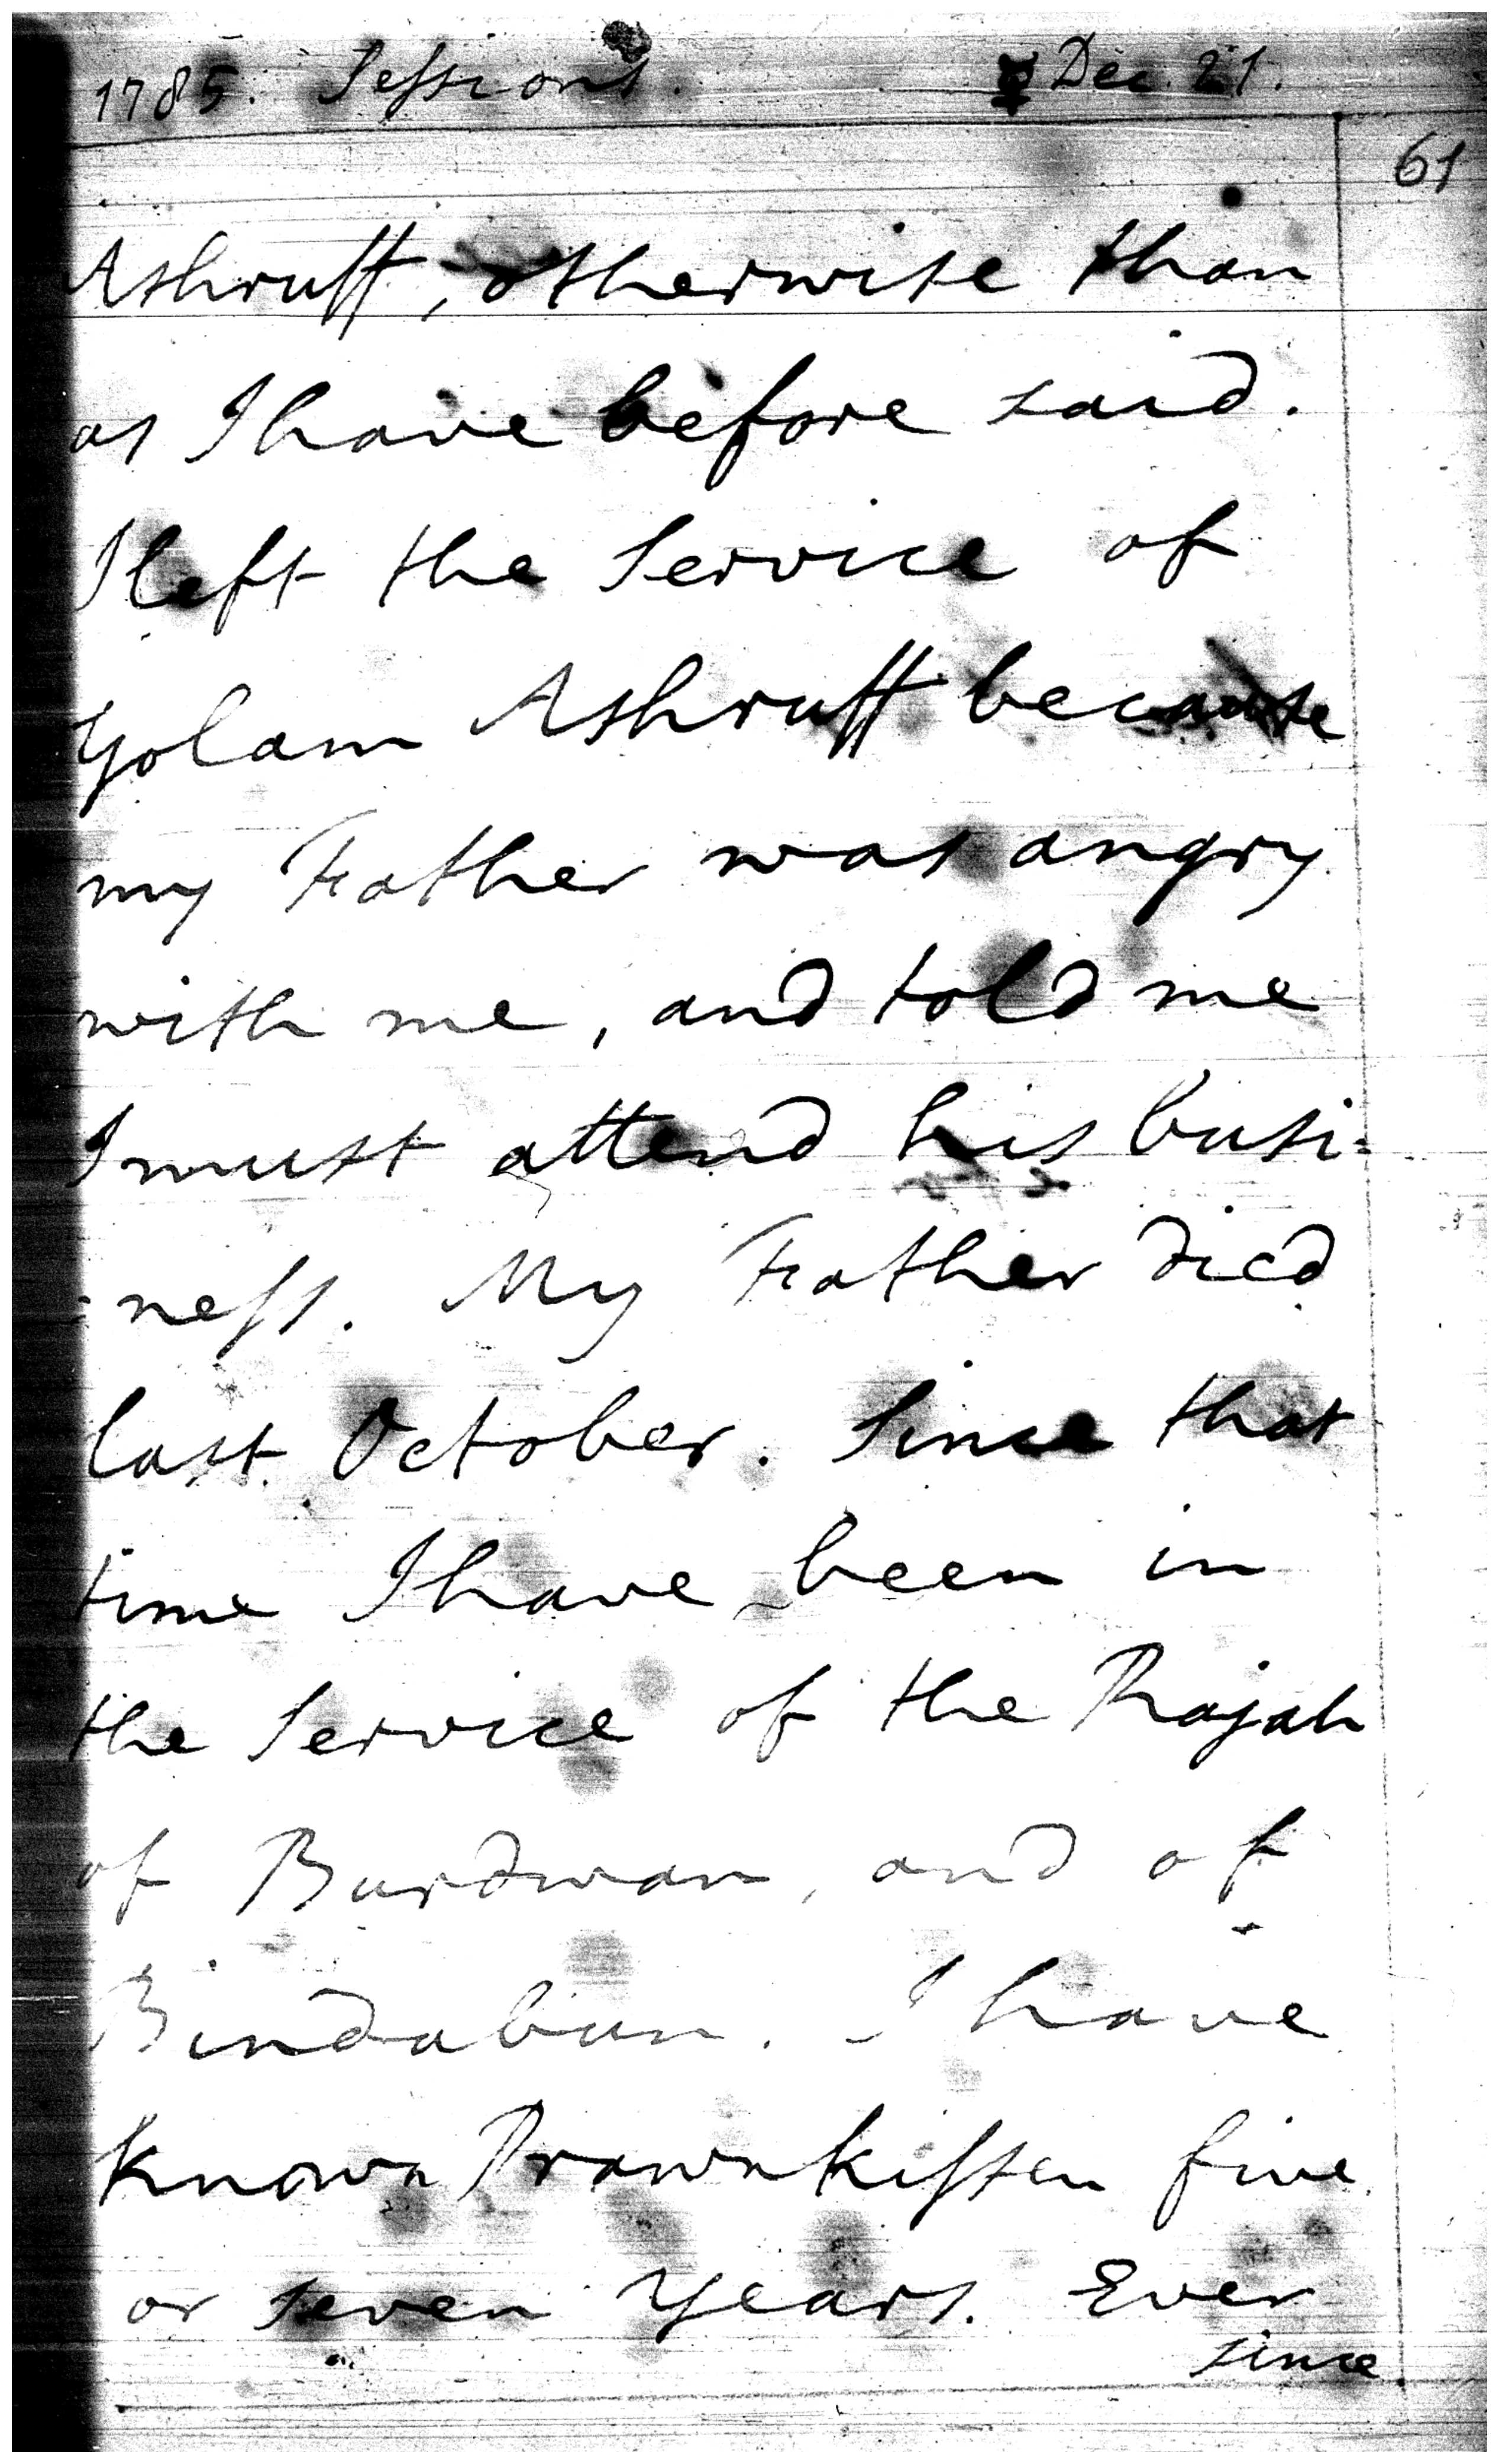 1785. Sessions. ☿ Dec. 21.
61
Ashruff, otherwise than
as I have before said.
I left the Service of
Golam Ashruff because
my Father was angry
with me, and told me
I must attend his busi-
-ness. My Father died
last October. Since that
time I have been in
the Service of the Rajah
of Burdwan, and of
Bindabun. I have
known Prawnkissen five
or seven Years. Ever
since